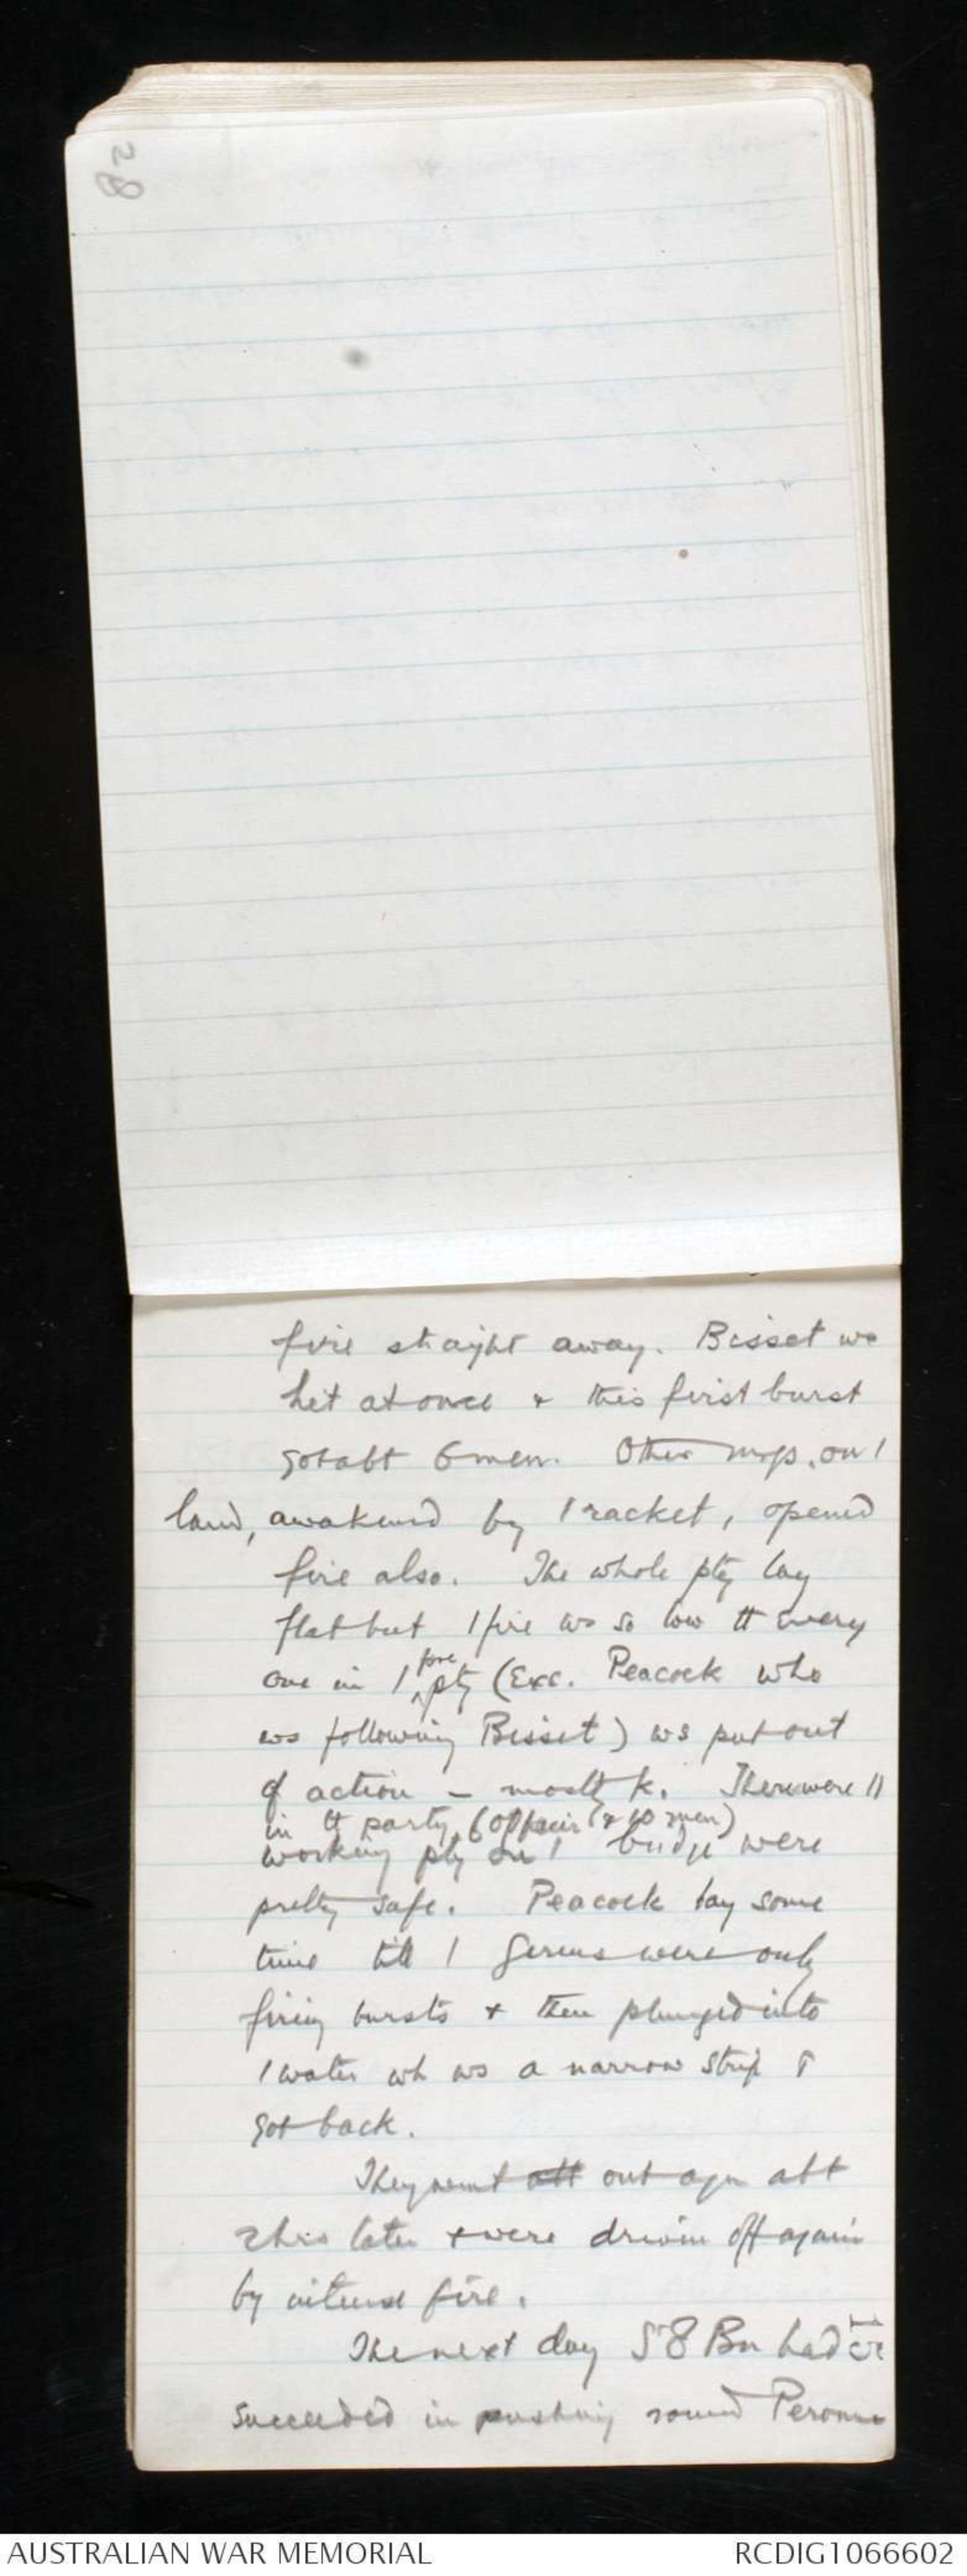 28
fire staight away. Bisset ws
hit at once & this first burst
got abt 6 men. Other m.gs. on /
land, awakened by / racket, opened
fire also. The whole pty lay
flat but / fire ws so low tt every
one in / fore pty (Exc. Peacock who
ws following Bisset) ws put out
of action – mostly k. There were 11
in tt party (& 10 men)
working pty on / bridge were
pretty safe. Peacock lay some
time till / Germs were only
firing bursts & then plunged into
/ water wh ws a narrow strip &
got back.
They went out agn abt
2 hrs later & were driven off again
by intense fire.
The next day 58 Bn had
succeeded in pushing round Peronne
15
AUSTRALIAN WAR MEMORIAL
RCDIG1066602